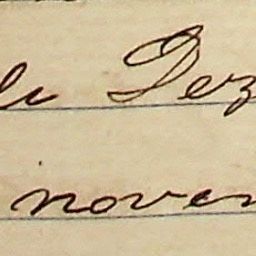 de Dez
noven